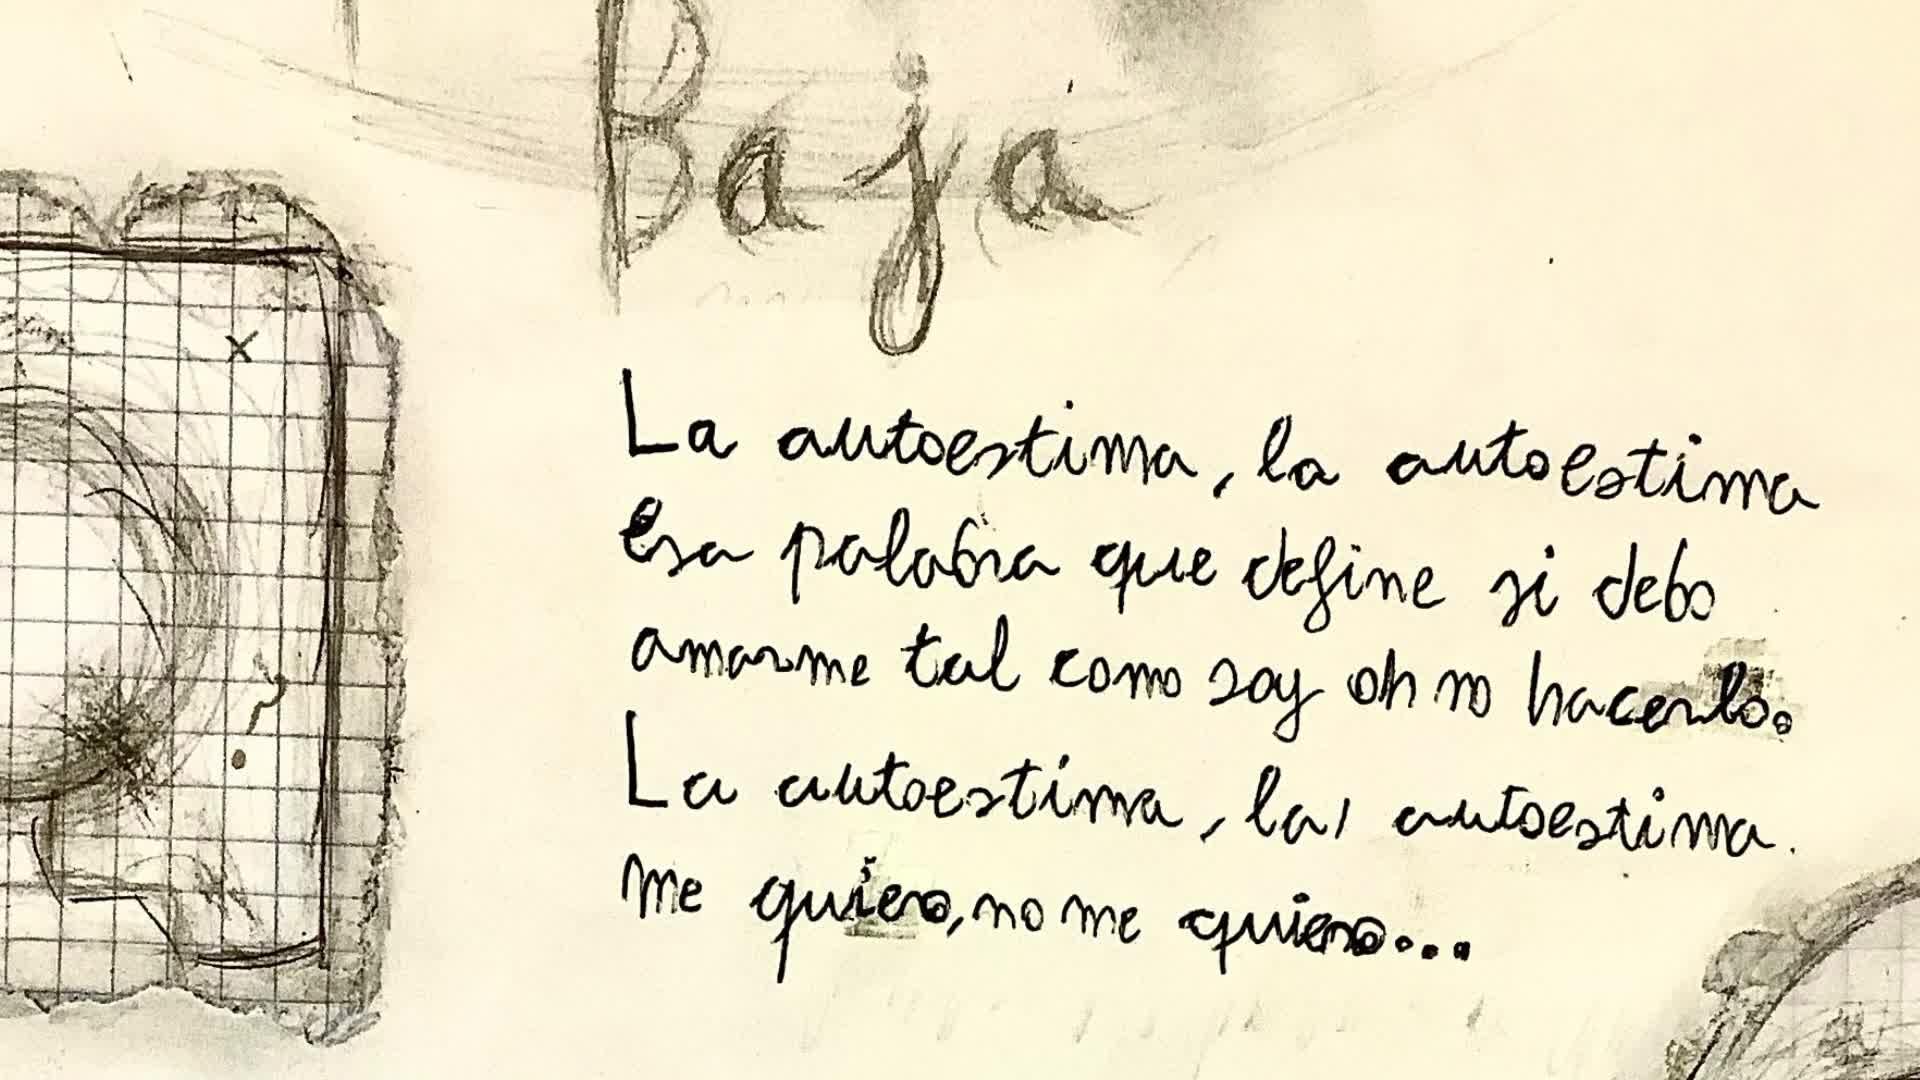 Baja
La autoestima, la autoestima
Esa palabra que define si debo
amarme tal como soy oh no hacerlo.
La autoestima, la, autoestima.
me quiero, no me quiero...